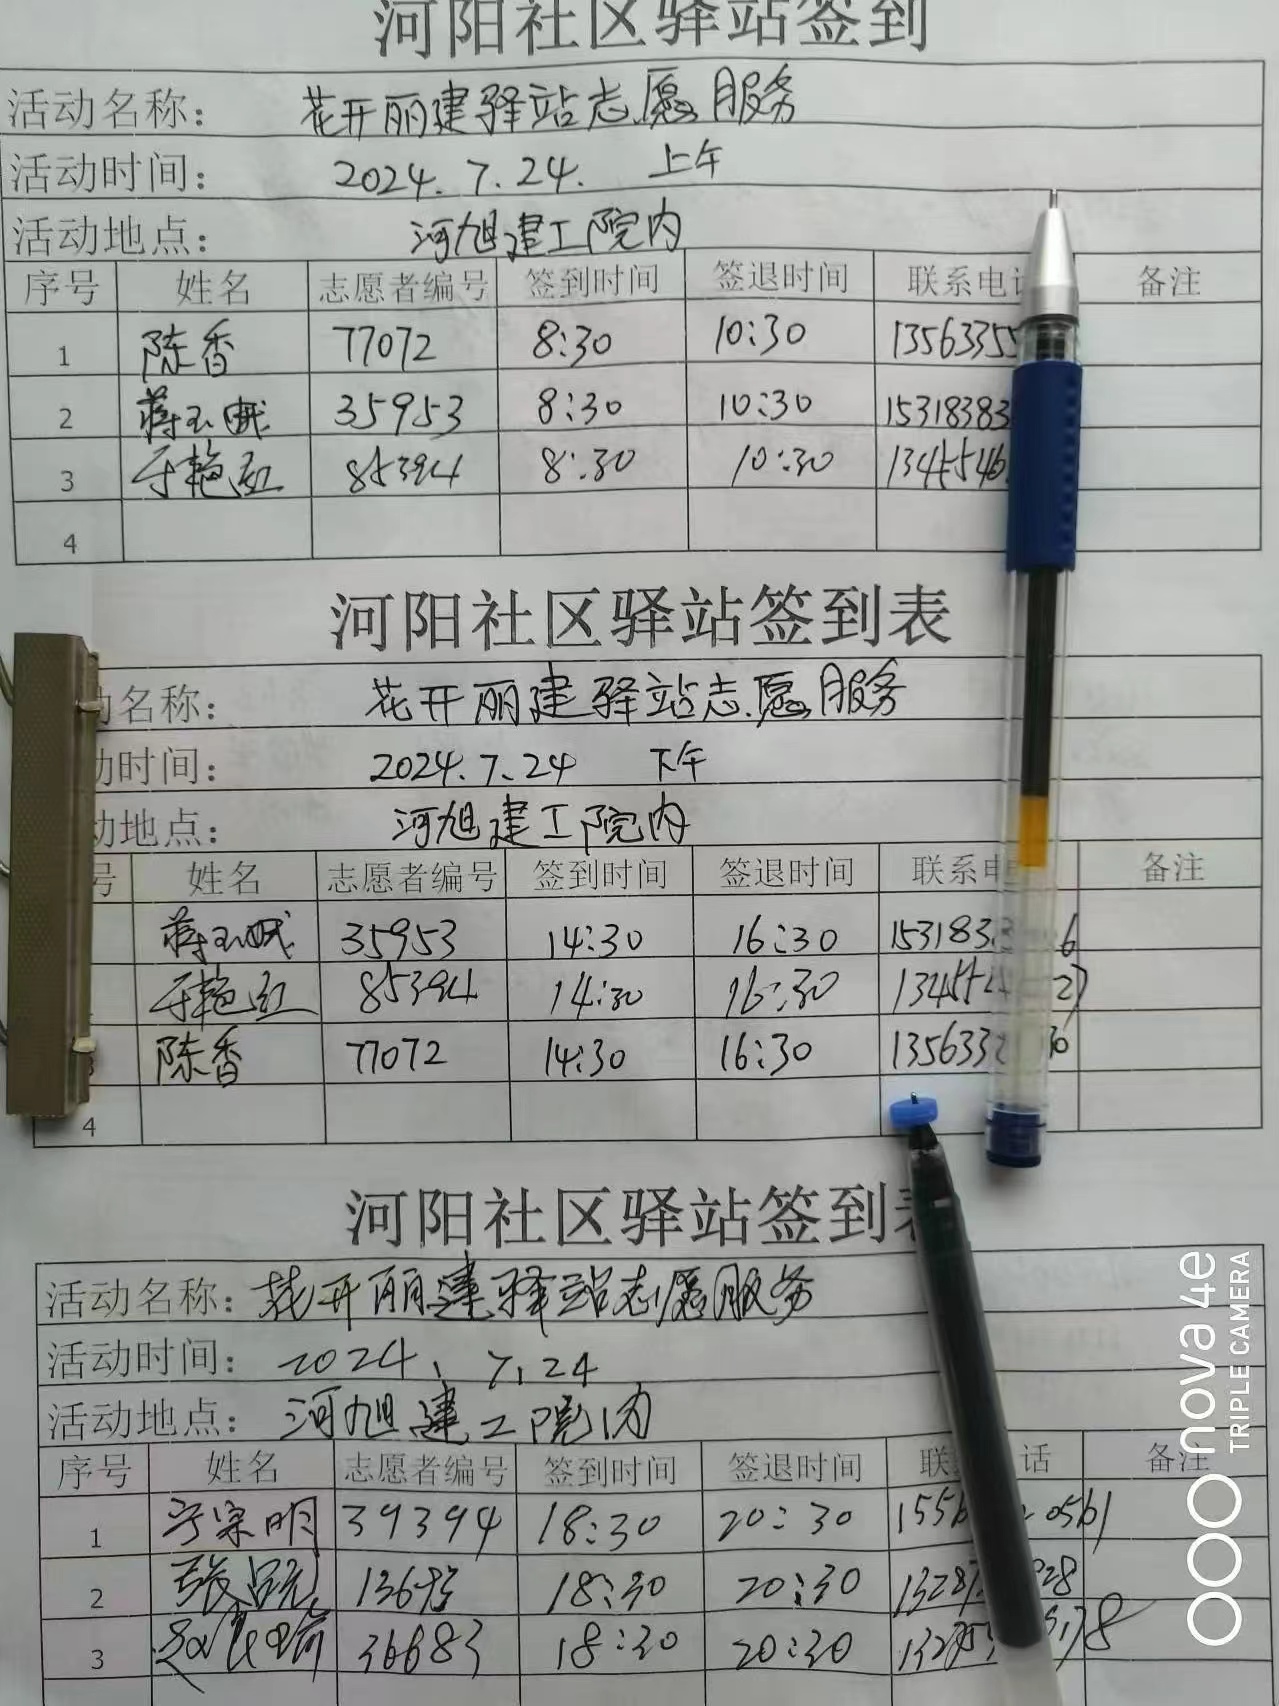 河阳社区驿站签到
活动名称： 花开丽建驿站志愿服务
活动时间： 2024.7.24. 上午
活动地点： 河旭建工院内
序号 姓名 志愿者编号 签到时间 签退时间 联系电话 备注
1 陈香 77072 8:30 10:30 13563355
2 35953 8:30 10:30 15318383
3 于艳红 85394 8:30 10:30 1345546
4
河阳社区驿站签到表
动名称： 花开丽建驿站志愿服务
动时间： 2024.7.24 下午
动地点： 河旭建工院内
号 姓名 志愿者编号 签到时间 签退时间 联系电 备注
35953 14:30 16:30 153183 6
于艳红 85394 14:30 16:30 13455 27
3 陈香 77072 14:30 16:30 1356333
4
河阳社区驿站签到表
活动名称： 花开丽建驿站志愿服务
活动时间： 2024、7.24
活动地点： 河旭建工院内
序号 姓名 志愿者编号 签到时间 签退时间 联 话 备注
1 宁宗明 39394 18:30 20:30 1556 0561
2 18:30 20:30 1328 928
3 36683 18:30 20:30
nova 4e
TRIPLE CAMERA